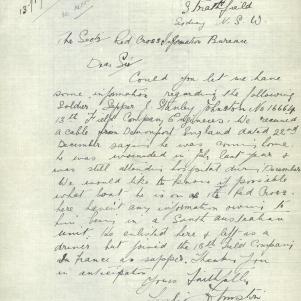 Strathfield
Sydney N.S.W
The Secty Red Cross Information Bureau
Dear Sir
Could you let we have
some information regarding the following
Soldier, Sapper J Stanley Johnston No 16664
13th Field Company Engineers. We received
a cable from Devonport England dated 22nd
December saying he was coming home
he was wounded in July last year &
was still attending hospital during December
We would like to know if possible
what boat he is on as the Red Cross
here hasn't any information owing to
him being in a South Australian
unit. He enlisted here & left as a
driver but joined the 13th Field Company
in France as sapper. Thanking you
in anticipation
Yours Faithfully
Johnston